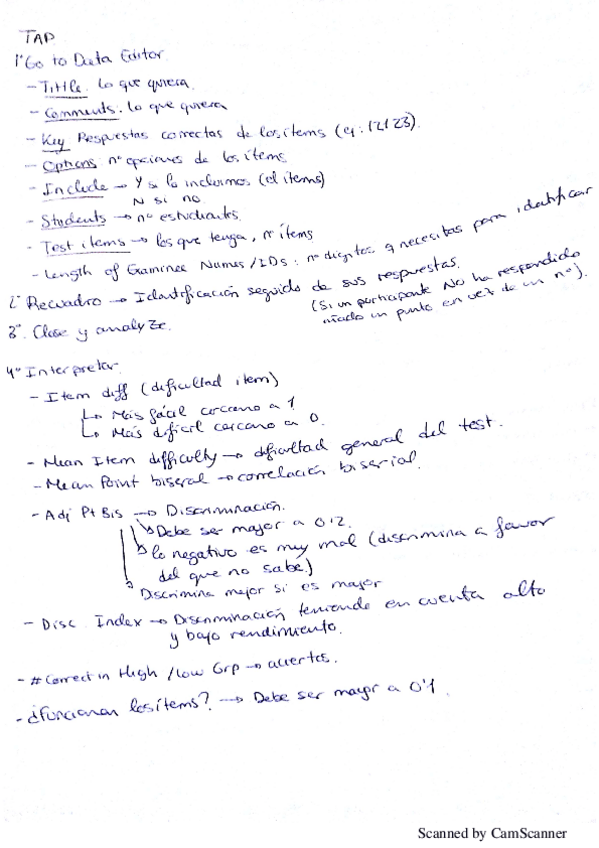 TAP
1º Go to Data Editor
- Tittle: lo que quiera
- Comments: lo que quiera
- Key Respuestas correctas de los ítems (ej: 12123).
- Options: nº opciones de los ítems
- Include → Y si lo incluimos (el ítems)
N si no
- Students → nº estudiantes.
- Test items → los que tenga, nº ítems
- Length of Examinee Names/IDs: nº dígitos q necesitas para identificar
2º Recuadro → Identificación seguido de sus respuestas.
(Si un participante No ha respondido
añado un punto en vez de un nº).
3º Close y analyze.
4º Interpretar.
- Item diff (dificultad item)
↳ Más fácil cercano a 1
↳ Más difícil cercano a 0.
- Mean Item difficulty → dificultad general del test.
- Mean Point biseral → correlación biserial.
- Adj Pt Bis → Discriminación.
↳ Debe ser mayor a 0'2.
↳ lo negativo es muy mal (discrimina a favor
del que no sabe)
Discrimina mejor si es mayor
- Disc. Index → Discriminación teniendo en cuenta alto
y bajo rendimiento.
- # Correct in High /low Grp → aciertos.
- ¿Funcionan los ítems? → Debe ser mayor a 0'1.
Scanned by CamScanner